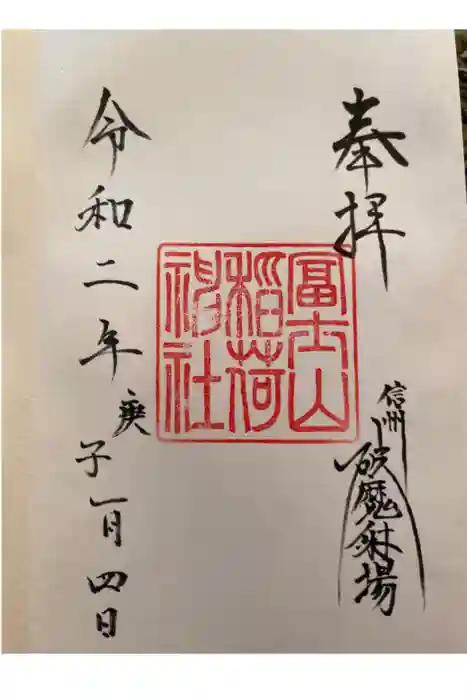 奉拝
信州
破魔射場
冨士山
稲荷
神社
令和二年庚
子一月四日